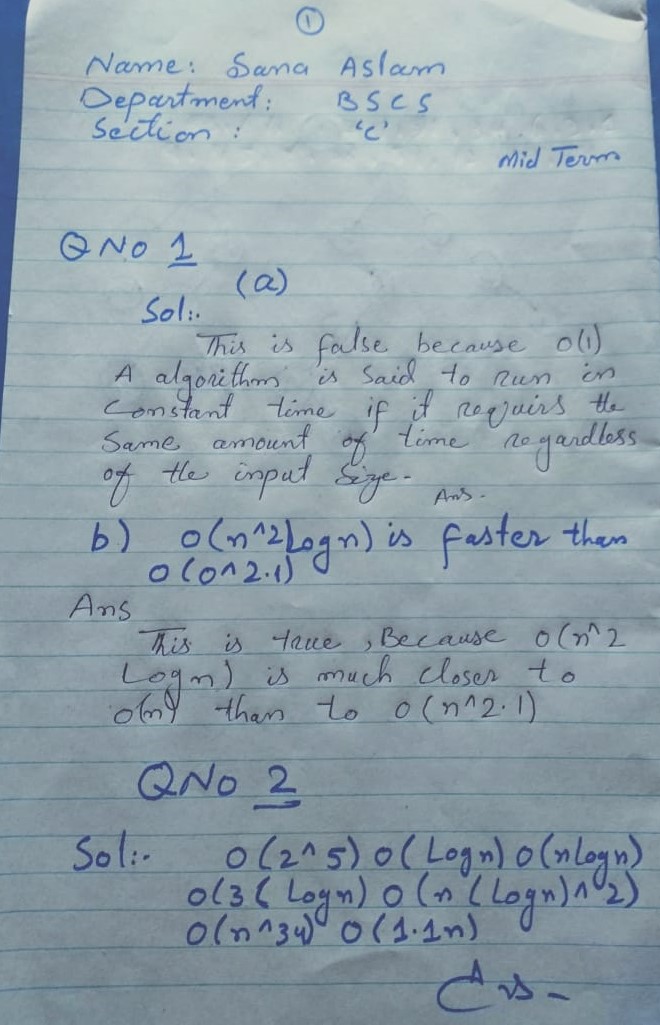 1
Name: Sana Aslam
Department: BSCS
Section: 'C'
Mid Term
Q No 1
(a)
Sol:.
This is false because o(1)
A algorithm is said to run in
constant time if it requirs the
same amount of time regardless
of the input size.
Ans.
b) o(n^2Logn) is faster than
o(o^2.1)
Ans
This is true, Because o(n^2
Logn) is much closer to
o(n) than to o(n^2.1)
Q No 2
Sol:- o(2^5) o(Logn) o(nlogn)
o(3(Logn) o(n(Logn)^2)
o(n^34) o(1.1n)